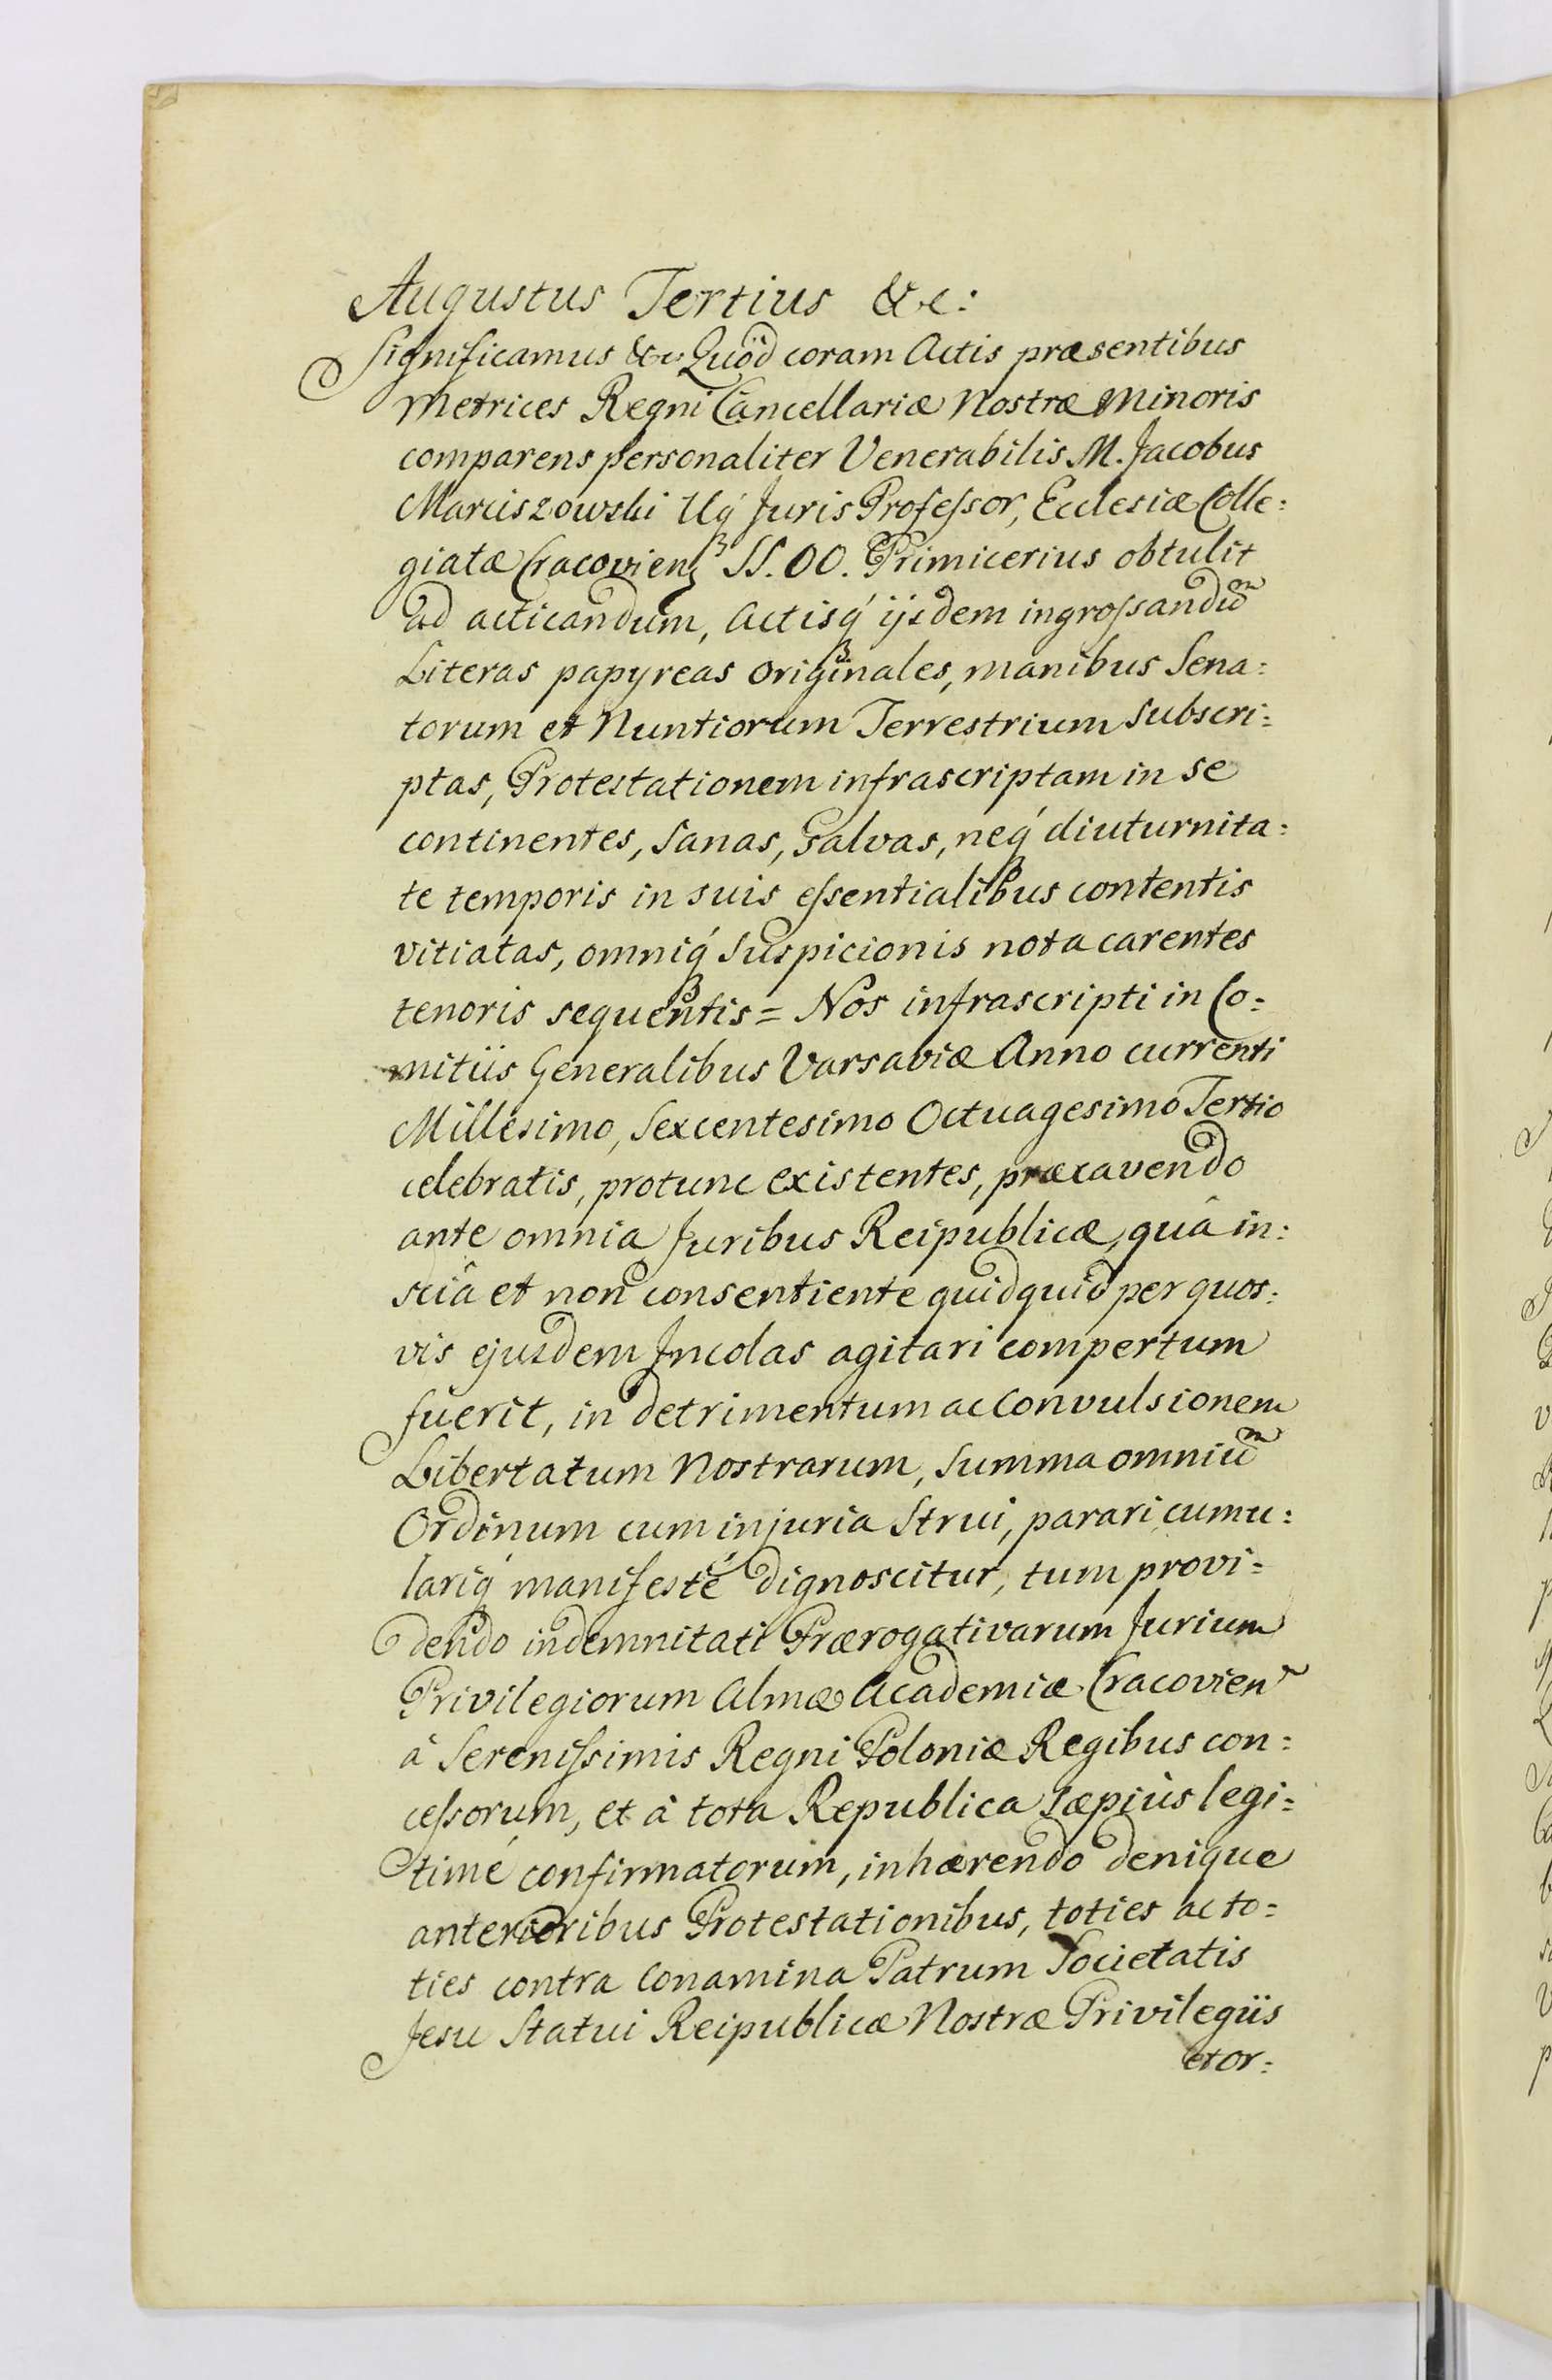 Augustus Tertius &c:
Significamus &c. Quòd coram Actis præsentibus
Metrices Regni Cancellariæ Nostræ Minoris
comparens personaliter Venerabilis M. Jacobus
Marciszowski Uq́ Juris Professor, Ecclesiæ Colle:
giatæ Cracovien SS. OO. Primicerius obtulit
ad acticandum, Actisq́ ijsdem ingrossandũ
Literas papyreas originales, manibus Sena:
torum et Nuntiorum Terrestrium Subscri:
ptas, Protestationem infrascriptam in se
continentes, Sanas, Salvas, neq́ diuturnita:
te temporis in suis essentialibus contentis
vitiatas, omniq́ Suspicionis nota carentes
tenoris sequentis = Nos infrascripti in Co:
mitiis Generalibus Varsaviæ Anno currenti
Millesimo, Sexcentesimo Octuagesimo Tertio
celebratis, protunc existentes, præcavendo
ante omnia Juribus Reipublicæ, quâ in:
sciâ et non consentiente quidquid per quos:
vis ejusdem Incolas agitari compertum
fuerit, in detrimentum ac Convulsionem
Libertatum Nostrarum, Summa omniũ
Ordinum cum injuria Strui, parari cumu:
lariq́ manifestè dignoscitur, tum provi:
dendo indemnitati Prærogativarum Jurium
Privilegiorum Almæ Academiæ Cracovien
à Serenissimis Regni Poloniæ Regibus con:
cessorum, et à tota Republica sæpiùs legi:
timé confirmatorum, inhærendo denique
anterioribus Protestationibus, toties ac to:
ties contra Conamina Patrum Societatis
Jesu Statui Reipublicæ Nostræ Privilegiis
et or: